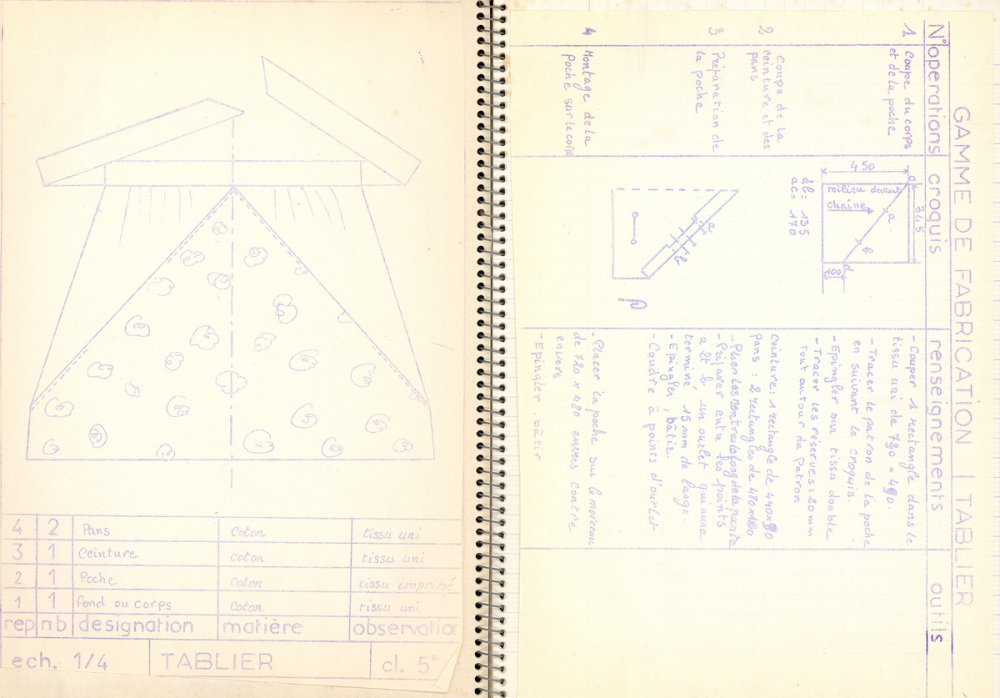 4 2 Pans coton tissu uni
3 1 Ceinture coton tissu uni
2 1 Poche coton tissu imprimé
1 1 fond ou corps coton tissu uni
rep nb designation matière observation
ech. 1/4 TABLIER cl. 5e
GAMME DE FABRICATION | TABLIER
N° operations croquis renseignements outils
1 Coupe du corps
et de la poche
450
345
milieu devant
chaine
a
b
d
100
- Couper 1 rectangle dans le
tissu uni de 720 × 490.
- Tracer le patron de la poche
en suivant le croquis.
- Epingler sur tissu double
- Tracer les réserves: 20 mm
tout autour du Patron
2 Coupe de la
ceinture et des
pans
db = 135
ac = 170
Ceinture: 1 rectangle de 440 × 90
pans: 2 rectangles de
3 Préparation de
la poche
a
b
- Préparer entre les points
a et b un ourlet qui aura
terminé 15 mm de large
- Epingler, bâtir.
- Coudre à points d'ourlet
4 Montage de la
poche sur le corps
- Placer la poche sur le morceau
de 720 × 490 envers contre
envers
- Epingler, bâtir